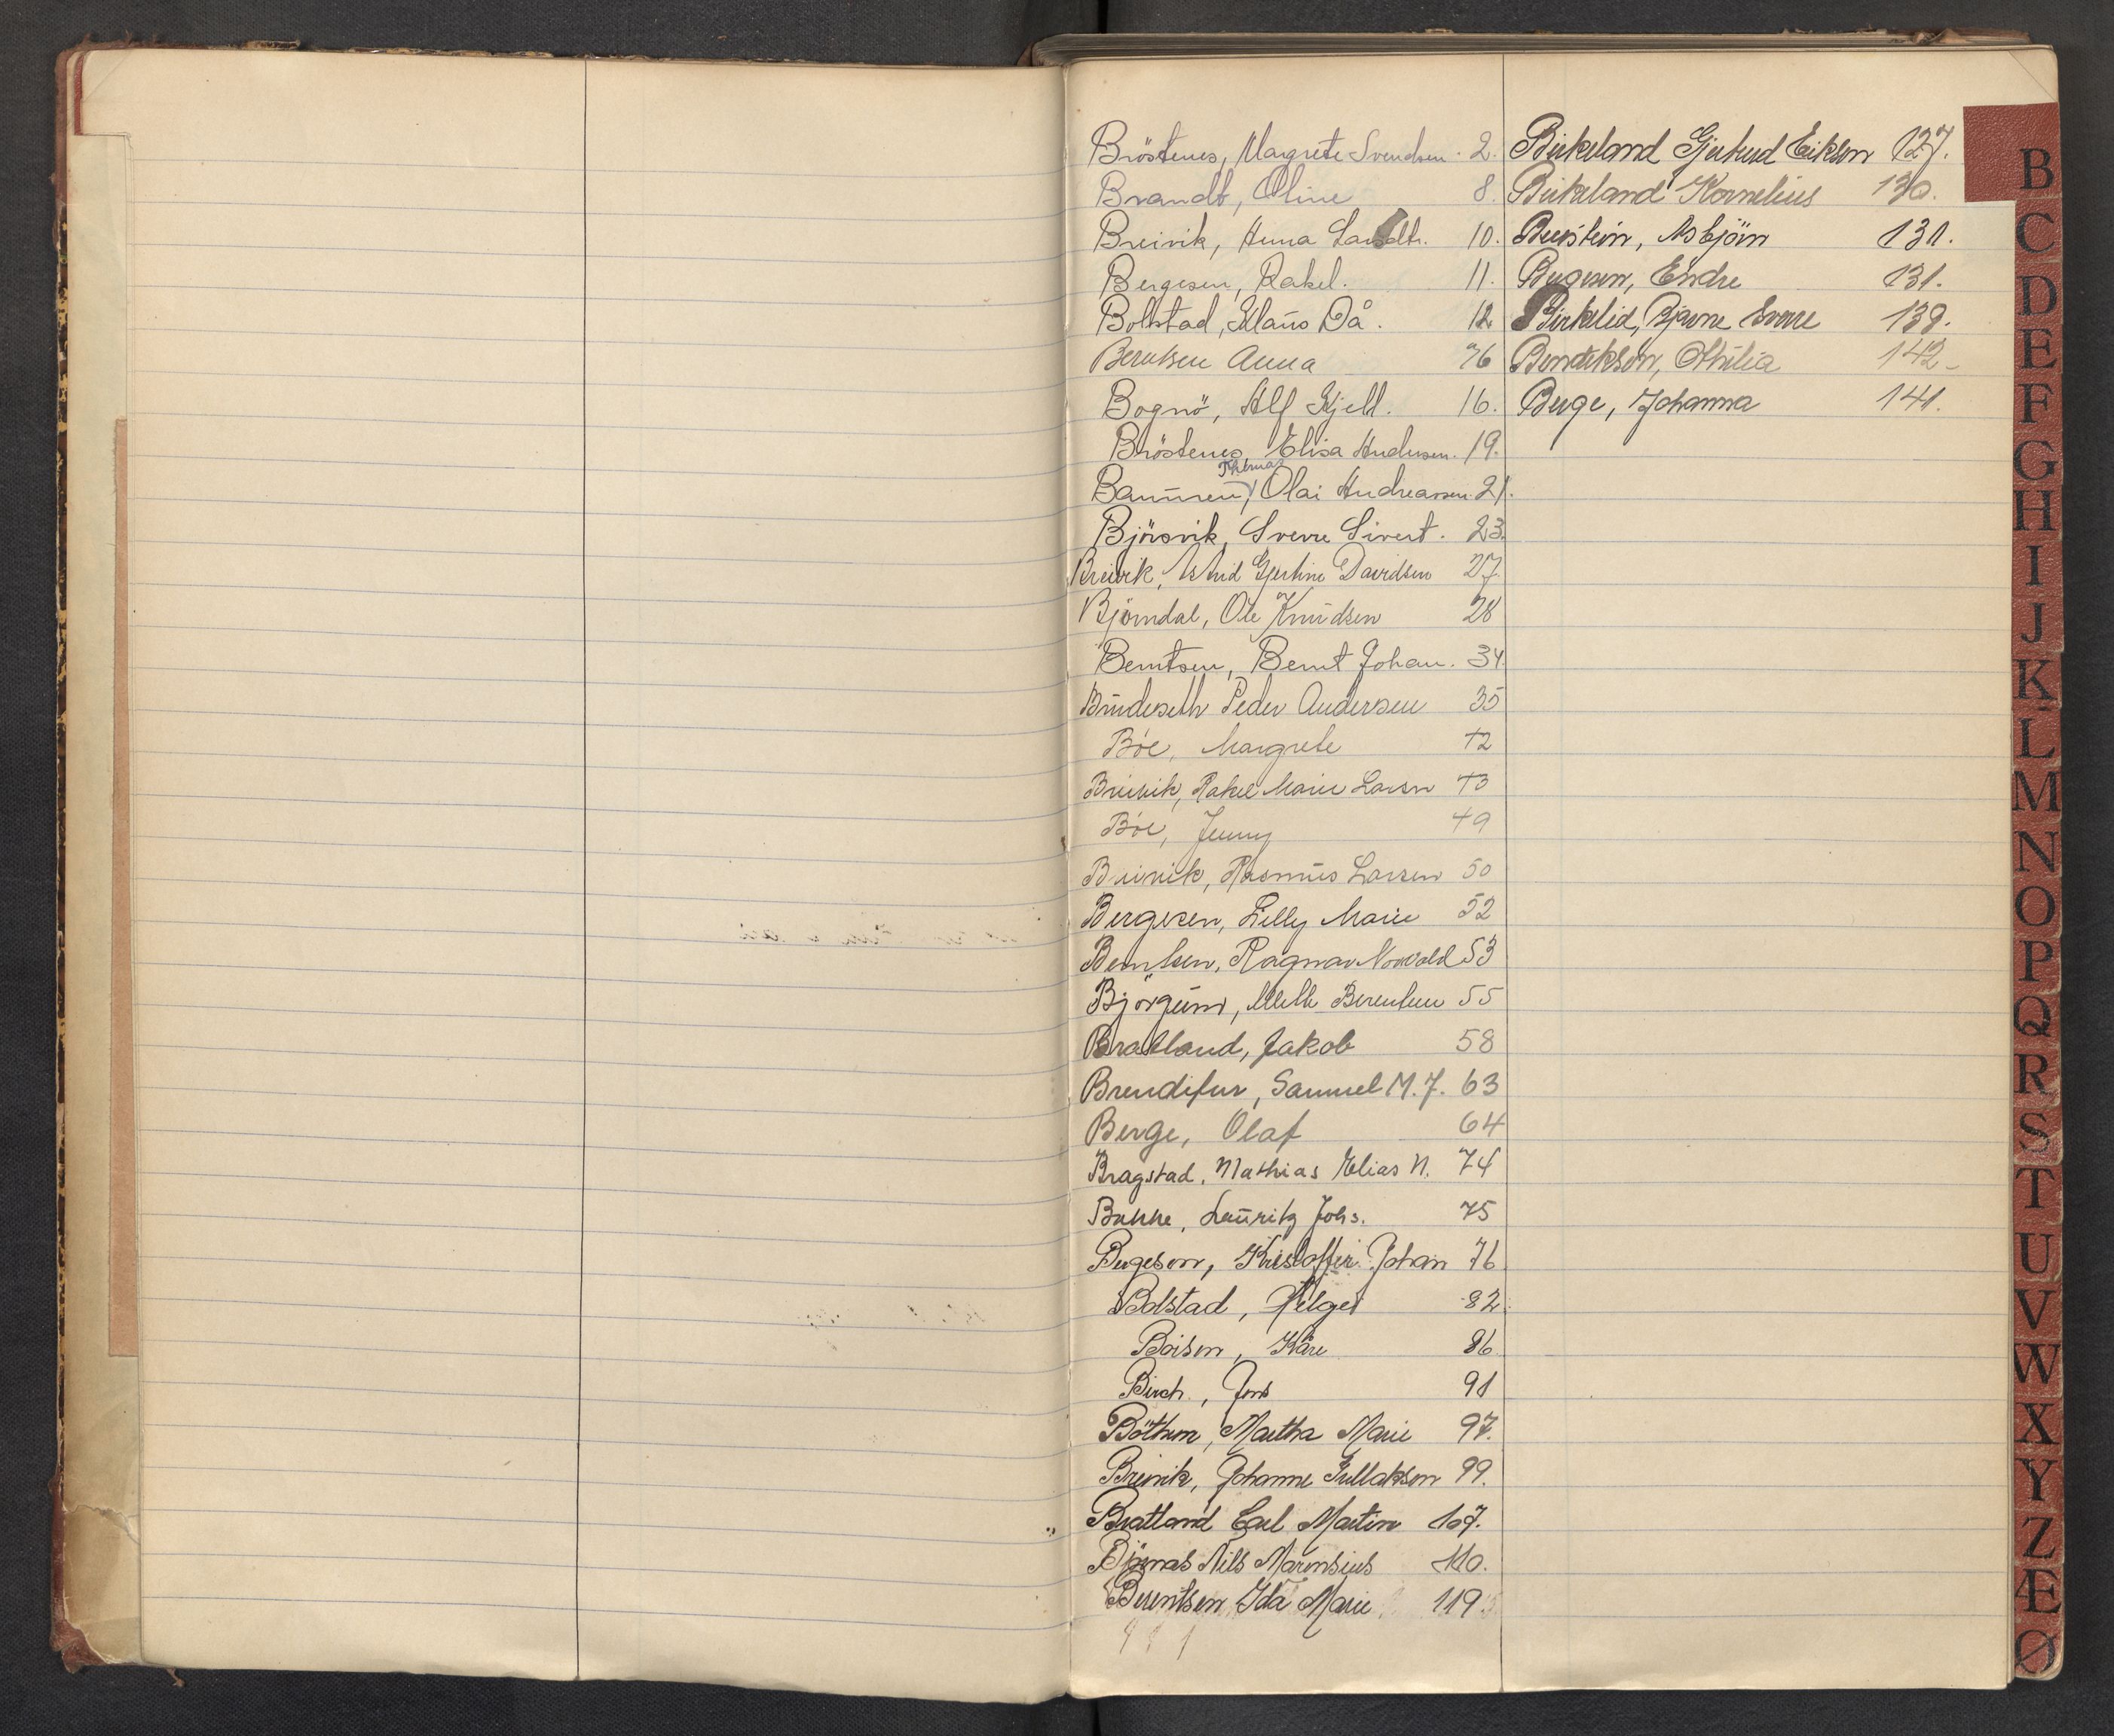 Bröstenes, Margrete Svendsen. 2.
Brandt, Oline 8.
Breivik, Anna Larsdtr. 10.
Bergesen, Rakel. 11.
Bolstad, Klaus Då. 12
Berntsen Anna 76
Bognö, Alf Kjell. 16.
Bröstenes, Elisa Andersen. 19.
Olai Andreassen. 21.
Björsvik, Sverre Sivert. 23.
Breivik, Astrid Gjertine Davidsen 27
Björndal, Ole Knudsen 28
Berntsen, Bernt Johan. 34.
Brudeseth Peder Andersen 35
Böe, Margrete 42
Breivik, Rakel Marie Larsen 43
Böe, Jenny 49
Breivik, Rasmus Larsen 50
Bergesen, Lilly Marie 52
Berntsen, Ragnar Norvald 53
Björgum, Berentsen 55
Bratland, Jakob 58
Samuel M. J. 63
Berge, Olaf 64
Bragstad, Mathias Elias N. 74
Bakke, Lauritz Johs. 75
Bergesen, Kristoffer Johan 76
Bolstad, Helge 82
Boisen, Kåre 86
Birch, Jens 91
Böthun, Martha Marie 97.
Breivik, Johanne Gullaksen 99.
Bratland Carl Martin 107.
Nils 110.
Berentsen Ida Marie 119
Birkeland Gjertrud Eriksen 127.
Birkeland Kornelius 130.
Asbjörn 131.
Bergesen, Endre 131.
Birkelid, Bjarne Sverre 139.
Bendiksen, Othilia 142-
Berge, Johanna 141.
B
C
D
E
F
G
H
I
J
K
L
M
N
O
P
Q
R
S
T
U
V
W
X
Y
Z
Æ
Ø